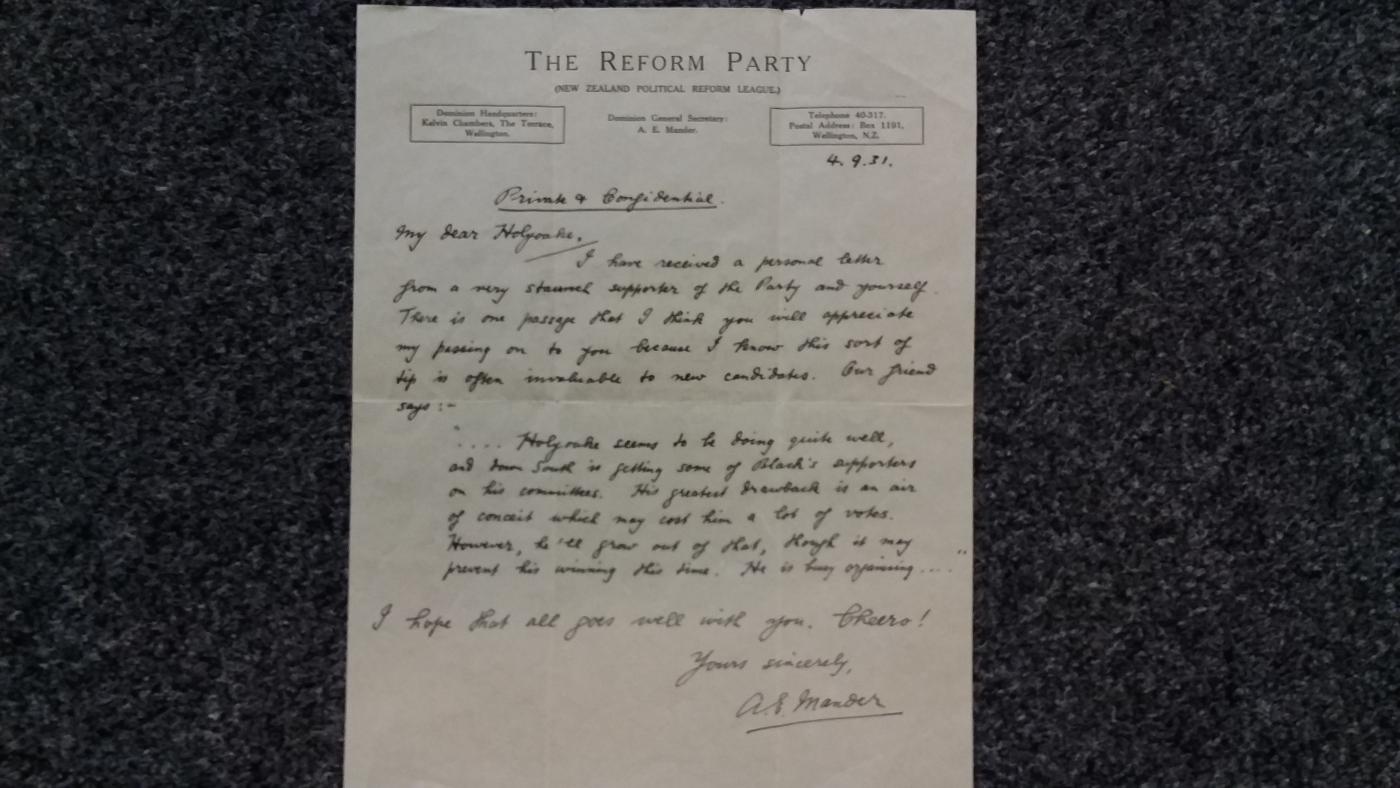 THE REFORM PARTY
(NEW ZEALAND POLITICAL REFORM LEAGUE.)
Dominion Headquarters:
Kelvin Chambers, The Terrace,
Wellington.
Dominion General Secretary:
A. E. Mander.
Telephone 40-317.
Postal Address: Box 1191,
Wellington, N.Z.
4.9.31.
Private & Confidential.
My dear Holyoake,
I have received a personal letter
from a very staunch supporter of the Party and yourself.
There is one passage that I think you will appreciate
my passing on to you because I know this sort of
tip is often invaluable to new candidates. Our friend
says :-
".... Holyoake seems to be doing quite well,
and down South is getting some of Black's supporters
on his committees. His greatest drawback is an air
of conceit which may cost him a lot of votes.
However, he'll grow out of that, though it may
prevent his winning this time. He is busy organising ...."
I hope that all goes well with you. Cheero!
Yours sincerely,
A.E. Mander